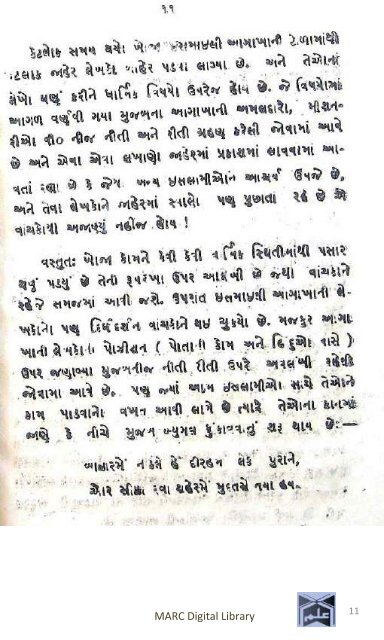 ૧૧
કેટલાક સમય થયાં ખોજા ઇસમાઇલી આગાખાની ટોળામાંથી
કેટલાક જાહેર લેખકો બાહેર પડવા લાગ્યા છે. અને તેઓનાં
લેખો ઘણું કરીને ધાર્મિક વિષયો ઉપરજ હોય છે. જે વિષયોમાં
આગળ વર્ણવી ગયા મુજબના આગાખાની અમલદારો, મીશન-
રીઓ વી૦ નીજ નીતી અને રીતી ગ્રહણ કરેલી જોવામાં આવે
છે અને એવા એવા લખાણો જાહેરમાં પ્રકાશમાં લાવવામાં આ-
વતાં રહ્યા છે કે જેથી અન્ય ઇસલામીઓને આશ્ચર્ય ઉપજે છે,
અને તેવા લેખકોને જાહેરમાં સવાલો પણ પુછાતા રહે છે એ
વાંચકોથી અજાણ્યું નહીંજ હોય !
વસ્તુતઃ ખોજા કોમને કેવી કેવી ધાર્મિક સ્થિતીમાંથી પસાર
થવું પડ્યું છે તેની રૂપરેખા ઉપર આલેખી છે જેથી વાંચકોને
સહેજે સમજમાં આવી જશે. ઉપરાંત ઇસમાઇલી આગાખાની લે-
ખકોના પણ દિગ્દર્શન વાંચકોને થઇ ચુક્યા છે. મજકુર આગા-
ખાની લેખકોના પોઝીશન ( પોતાની કોમ અને હિંદુઓ સાથે )
ઉપર જણાવ્યા મુજબનીજ નીતી રીતી ઉપર અવલંબી રહેલી
જોવામાં આવે છે. પણ જ્યાં આમ ઇસલામીઓ સાથે તેઓને
કામ પાડવાનો વખત આવી લાગે છે ત્યારે તેઓના કાનમાં
જાણે કે નીચે મુજબ બ્યુગલ ફુંકાવવાનું શરૂ થાય છેઃ—
બાહારમેં ન કેમે હેં દીરહન લેકે પુરાને,
ઓર શહેરમેં મુદતસે નયા હય.
MARC Digital Library
علم
11